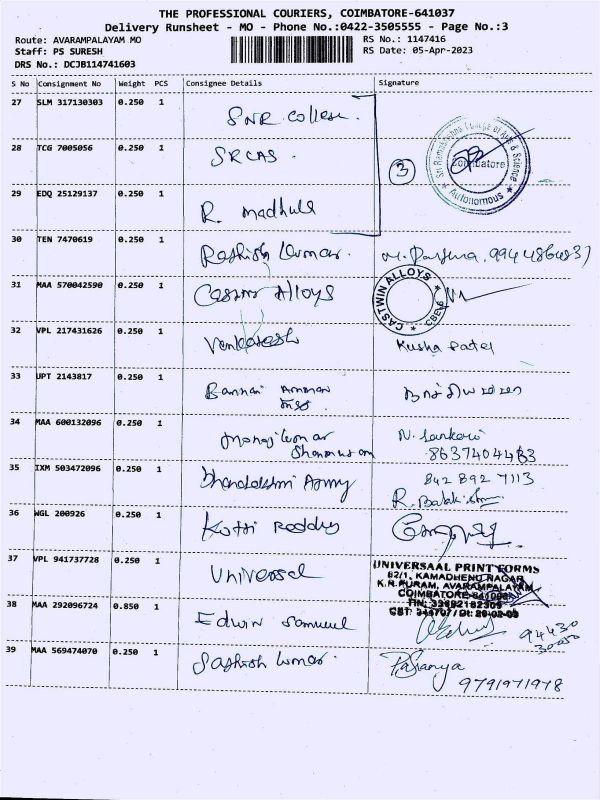 THE PROFESSIONAL COURIERS, COIMBATORE-641037
Delivery Runsheet - MO - Phone No.:0422-3505555 - Page No.:3
Route: AVARAMPALAYAM MO
RS No.: 1147416
Staff: PS SURESH
RS Date: 05-Apr-2023
DRS No.: DCJB114741603
S No Consignment No Weight PCS Consignee Details Signature
27 SLM 317130303 0.250 1 SNR College.
28 TCG 7005056 0.250 1 SRCAS.
3
Sri Ramakrishna College of Arts & Science
Coimbatore
Autonomous
29 EDQ 25129137 0.250 1 R. Madhula
30 TEN 7470619 0.250 1
31 MAA 570042590 0.250 1 Alloys
CASTWIN ALLOYS
32 VPL 217431626 0.250 1 Venkatesh Kusha Patel
33 UPT 2143817 0.250 1 Bannari Amman
34 MAA 600132096 0.250 1 Manoj Kumar
35 IXM 503472096 0.250 1 842 892 7113
36 WGL 200926 0.250 1 Kotti Reddy
37 VPL 941737728 0.250 1 Universal
UNIVERSAAL PRINT FORMS
62/1, KAMADHENU NAGAR
K.R.PURAM, AVARAMPALAYAM
38 MAA 292096724 0.850 1 Edwin Samuel
94430
39 MAA 569474070 0.250 1 Sathish Kumar.
9791971978